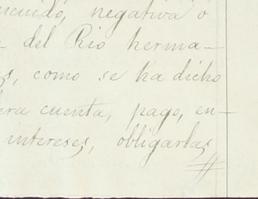 negativa o
del Rio herma-
como se ha dicho
cuenta, pago, en-
intereses, obligarlas